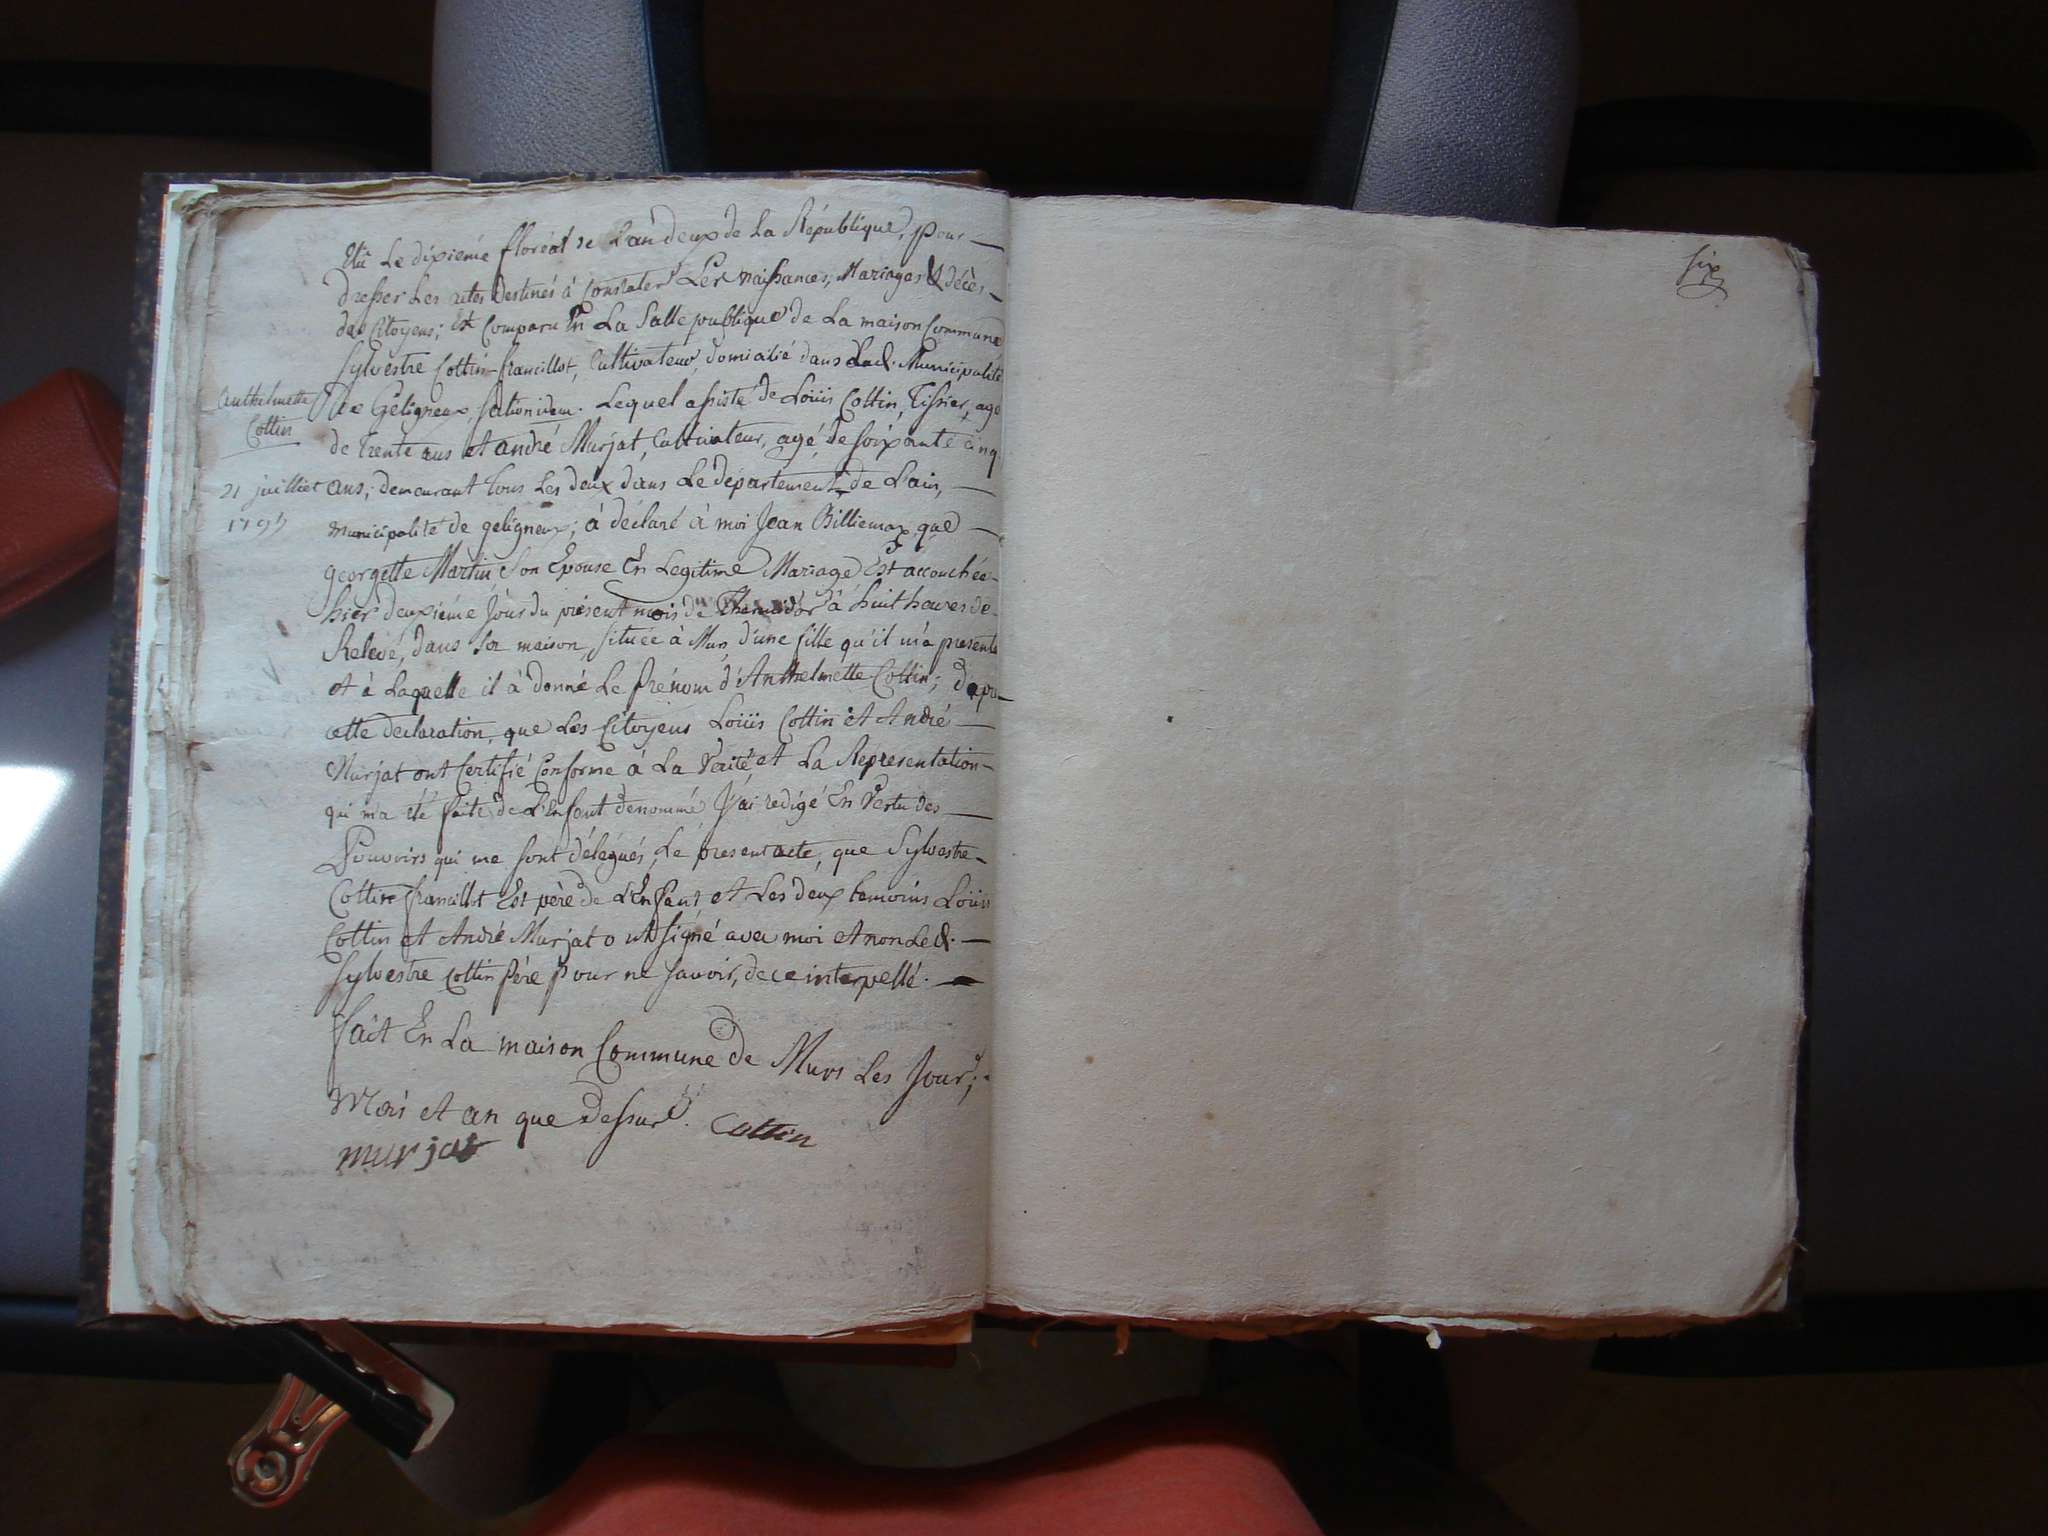 Elû Le dixiemé floréal de L'an deux de La République, pour
dresser Les actes Destinés à Constater Les naissances, Mariages & décès
des Citoyens; Est Comparu En La Salle publique de La maison Commune
Sylvestre Cottin-francillot, Cultivateur, domicilié dans Lad. Municipalité
Anthelmette
Cottin
De Geligneux, section idem. Lequel assisté de Loüis Cottin, Tissier, agé
de Trente ans et André Murjat, Cultivateur, agé de soixante cinq
21 juilliet
ans; demeurant tous Les deux dans Le département de L'ain,
municipalité de geligneux; à déclaré à moi Jean Billiemaz que
georgette Martin Son Epouse En Legitime Mariage Est accouchée
hier deuxiéme Jour du présent mois de Thermidor à huit heures de
Relevé, dans sa maison, située à Murs, d'une fille qu'il m'a présenté
et à Laquelle il à donné Le prénom d'Anthelmette Cottin; d'après
cette declaration, que Les Citoyens Loüis Cottin et André
Murjat ont Certifié Conforme à La Verité et La Representation
qui m'a été faite de L'Enfant denommé, J'ai redigé En Vertu des
Pouvoirs qui me sont délégués, Le present acte, que Sylvestre
Cottin francillot Est père de L'Enfant et Les deux temoins Loüis
Cottin et André Murjat ont signé avec moi et non Led.
Sylvestre Cottin Père pour ne savoir, de ce interpellé.
fait En La maison Commune de Murs Les Jour,
Mois et an que Dessus. Cottin
murjat
six